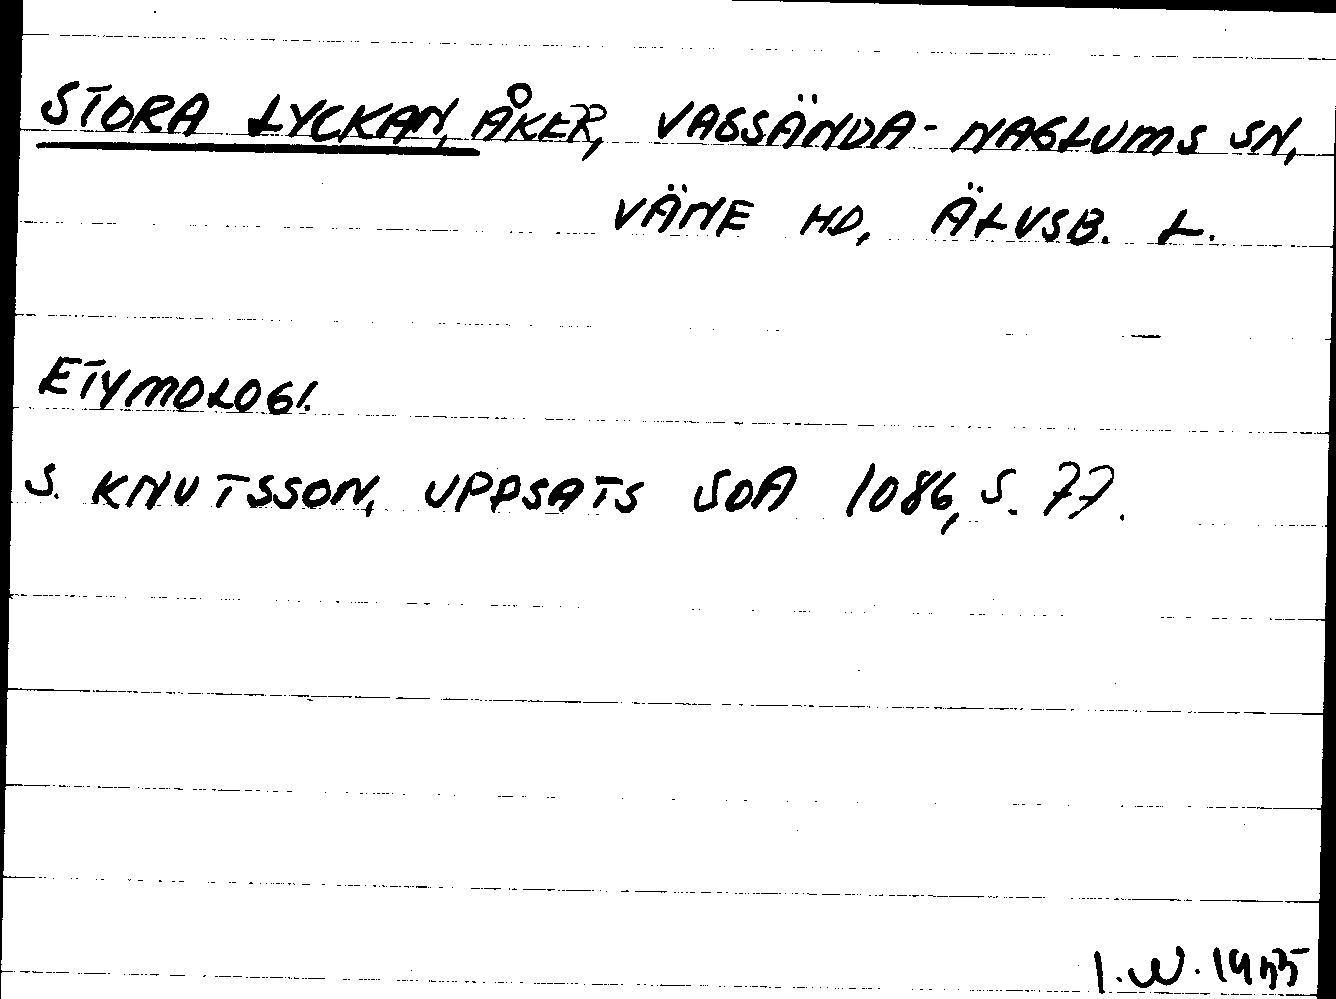 STORA LYCKAN, ÅKER, VASSÄNDA-NAGLUMS SN,
VÄNE HD, ÄLVSB. L.
ETYMOLOGI.
S. KNUTSSON, UPPSATS SOA 1086, S. 77.
I.W. 1955